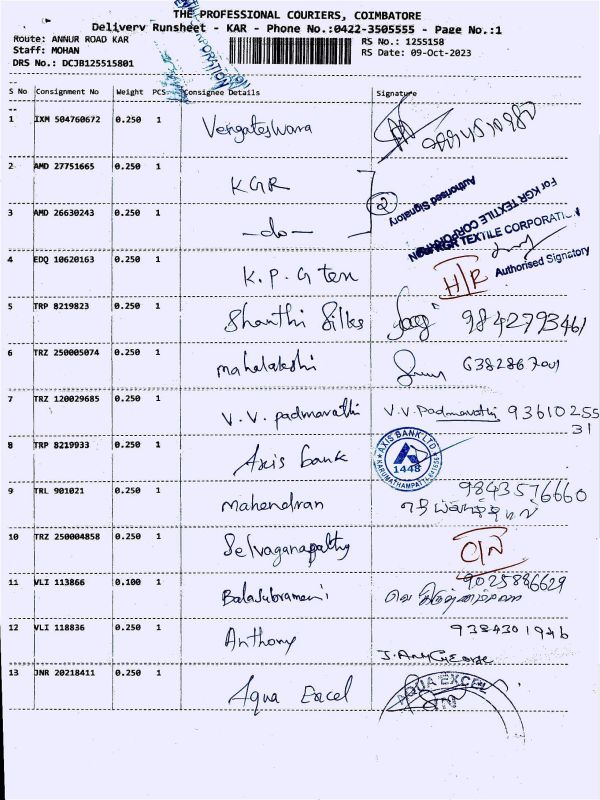 THE PROFESSIONAL COURIERS, COIMBATORE
Delivery Runsheet - KAR - Phone No.:0422-3505555 - Page No.:1
Route: ANNUR ROAD KAR
RS No.: 1255158
Staff: MOHAN
RS Date: 09-Oct-2023
DRS No.: DCJB125515801
S No Consignment No Weight PCS Consignee Details Signature
1 IXM 504760672 0.250 1 Vengateswara
2 AMD 27751665 0.250 1 KGR
2
Authorised Signatory
For KGR TEXTILE CORPORATION
3 AMD 26630243 0.250 1 -do-
KGR TEXTILE CORPORATION
Authorised Signatory
4 EDQ 10620163 0.250 1 K.P.G tex H/R
5 TRP 8219823 0.250 1 Shanthi Silks 9842793461
6 TRZ 250005074 0.250 1 mahalakshi 6382867001
7 TRZ 120029685 0.250 1 V.V. padmavathi V.V. Padmavathi 93610255
31
8 TRP 8219933 0.250 1 Axis bank AXIS BANK LTD 1448
9 TRL 901021 0.250 1 mahendran 9843576660
10 TRZ 250004858 0.250 1 Selvaganapathy
11 VLI 113866 0.100 1 Balasubramani 9025886629
12 VLI 118836 0.250 1 Anthony 9384301946
13 JNR 20218411 0.250 1 Aqua Excel AQUA EXCEL